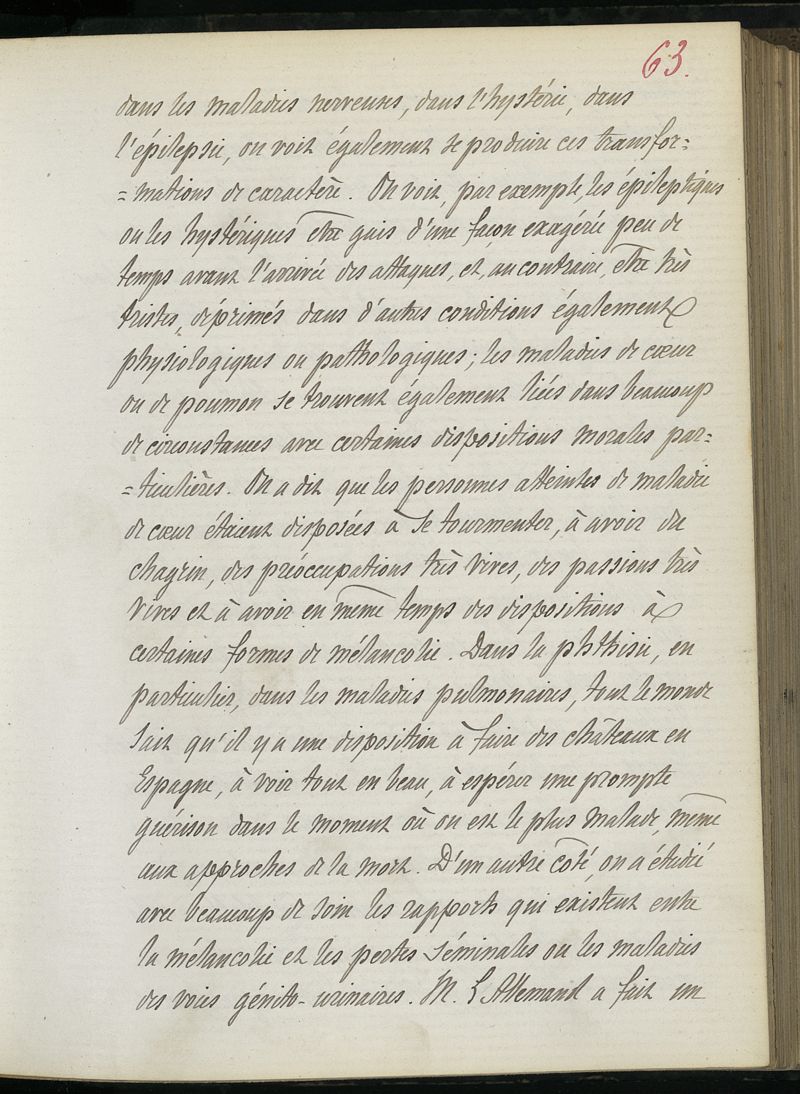 63.
dans les maladies nerveuses, dans l'hystérie, dans
l'épilepsie, on voit également se produire ces transfor=
=mations de caractère. On voit, par exemple, les épileptiques
ou les hystériques être gais d'une façon exagérée peu de
temps avant l'arrivée des attaques, et, au contraire, être très
tristes, déprimés dans d'autres conditions également
physiologiques ou pathologiques ; les maladies de cœur
ou de poumon se trouvent également liées dans beaucoup
de circonstances avec certaines dispositions morales par=
=ticulières. On a dit que les personnes atteintes de maladie
de cœur étaient disposées à se tourmenter, à avoir du
chagrin, des préoccupations très vives, des passions très
vives et à avoir en même temps des dispositions à
certaines formes de mélancolie. Dans la phthisie, en
particulier, dans les maladies pulmonaires, tout le monde
sait qu'il y a une disposition à faire des châteaux en
Espagne, à voir tout en beau, à espérer une prompte
guérison dans le moment où on est le plus malade, même
aux approches de la mort. D'un autre côté, on a étudié
avec beaucoup de soin les rapports qui existent entre
la mélancolie et les pertes séminales ou les maladies
des voies génito-urinaires. M. L'Allemand a fait un